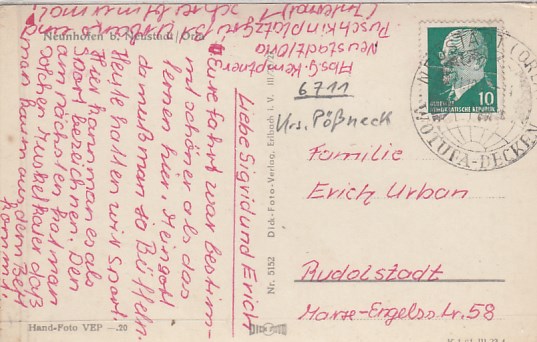 Neunhofen b. Neustadt/Orla
Abs. G. Kemptner
Neustadt/Orla
Puschkinplatz
Liebe Sigrid und Erich
Eure Fahrt war bestim-
mt schöner als das
lernen hier. Mein Gott
da muß man so Büffeln.
Heute hatten wir Sport.
Hier kann man es als
Sport bezeichnen. Den
am nächsten hat man
solchen Muskelkater daß
man kaum aus dem Bett
kommt.
Hand-Foto VEP —.20
Nr. 5152 Dick-Foto-Verlag, Erlbach i. V.
DICK FOTO
DEUTSCHE DEMOKRATISCHE REPUBLIK
10
NEUSTADT (ORLA)
WOTUFA-DECKEN
6711
Krs. Pößneck
Familie
Erich Urban
Rudolstadt
Marx-Engelsstr. 58